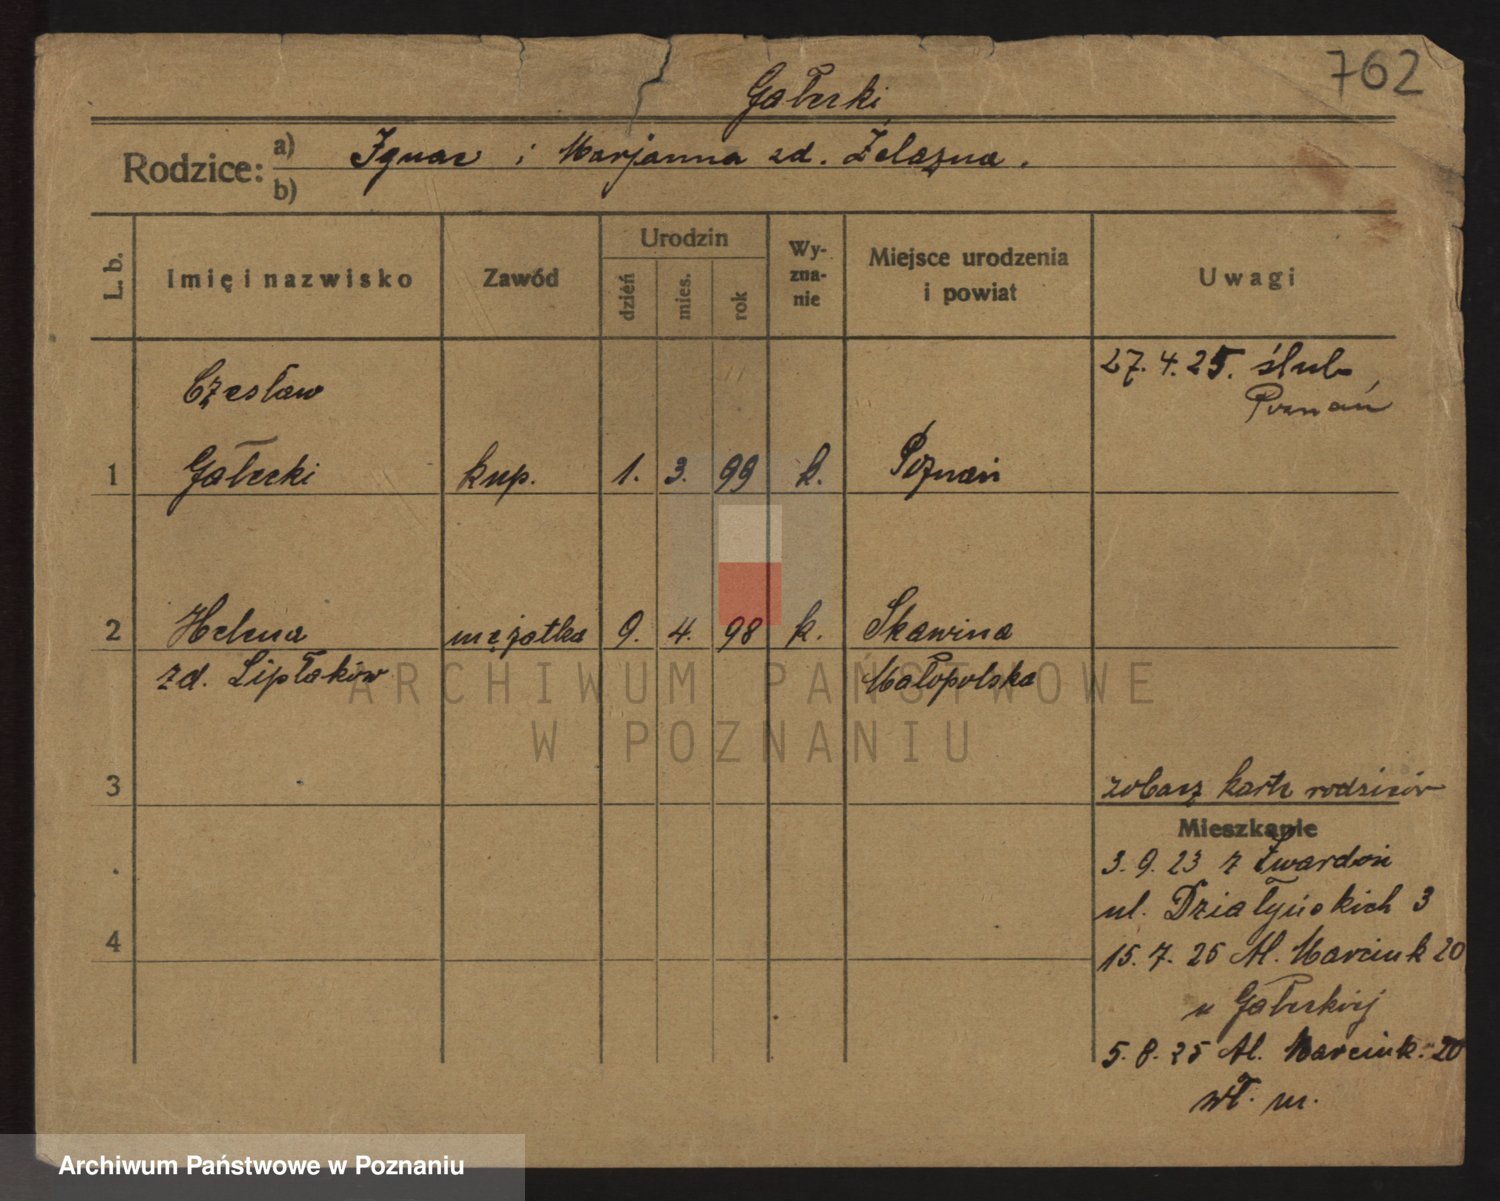 762
Gałecki
Rodzice: a) Ignac i Marjanna zd. Żelazna.
b)
L. b. Imię i nazwisko Zawód Urodzin dzień mies. rok Wyznanie Miejsce urodzenia i powiat Uwagi
27.4.25. ślub
Poznań
Czesław
1 Gałecki kup. 1. 3. 99 k. Poznań
2 Helena mężatka 9. 4. 98 k. Skawina
zd. Liptaków Małopolska
ARCHIWUM PAŃSTWOWE
W POZNANIU
3 zobacz kartę rodziców
Mieszkanie
3.9.23 z
ul. Działyńskich 3
4
15.7.25 Al. Marcink 20
u Gałeckiej
5.8.25 Al. Marcink. 20
wł. m.
Archiwum Państwowe w Poznaniu